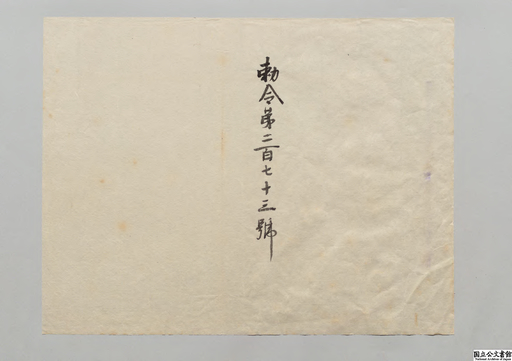 勅令第二百七十三號
国立公文書館
National Archives of Japan